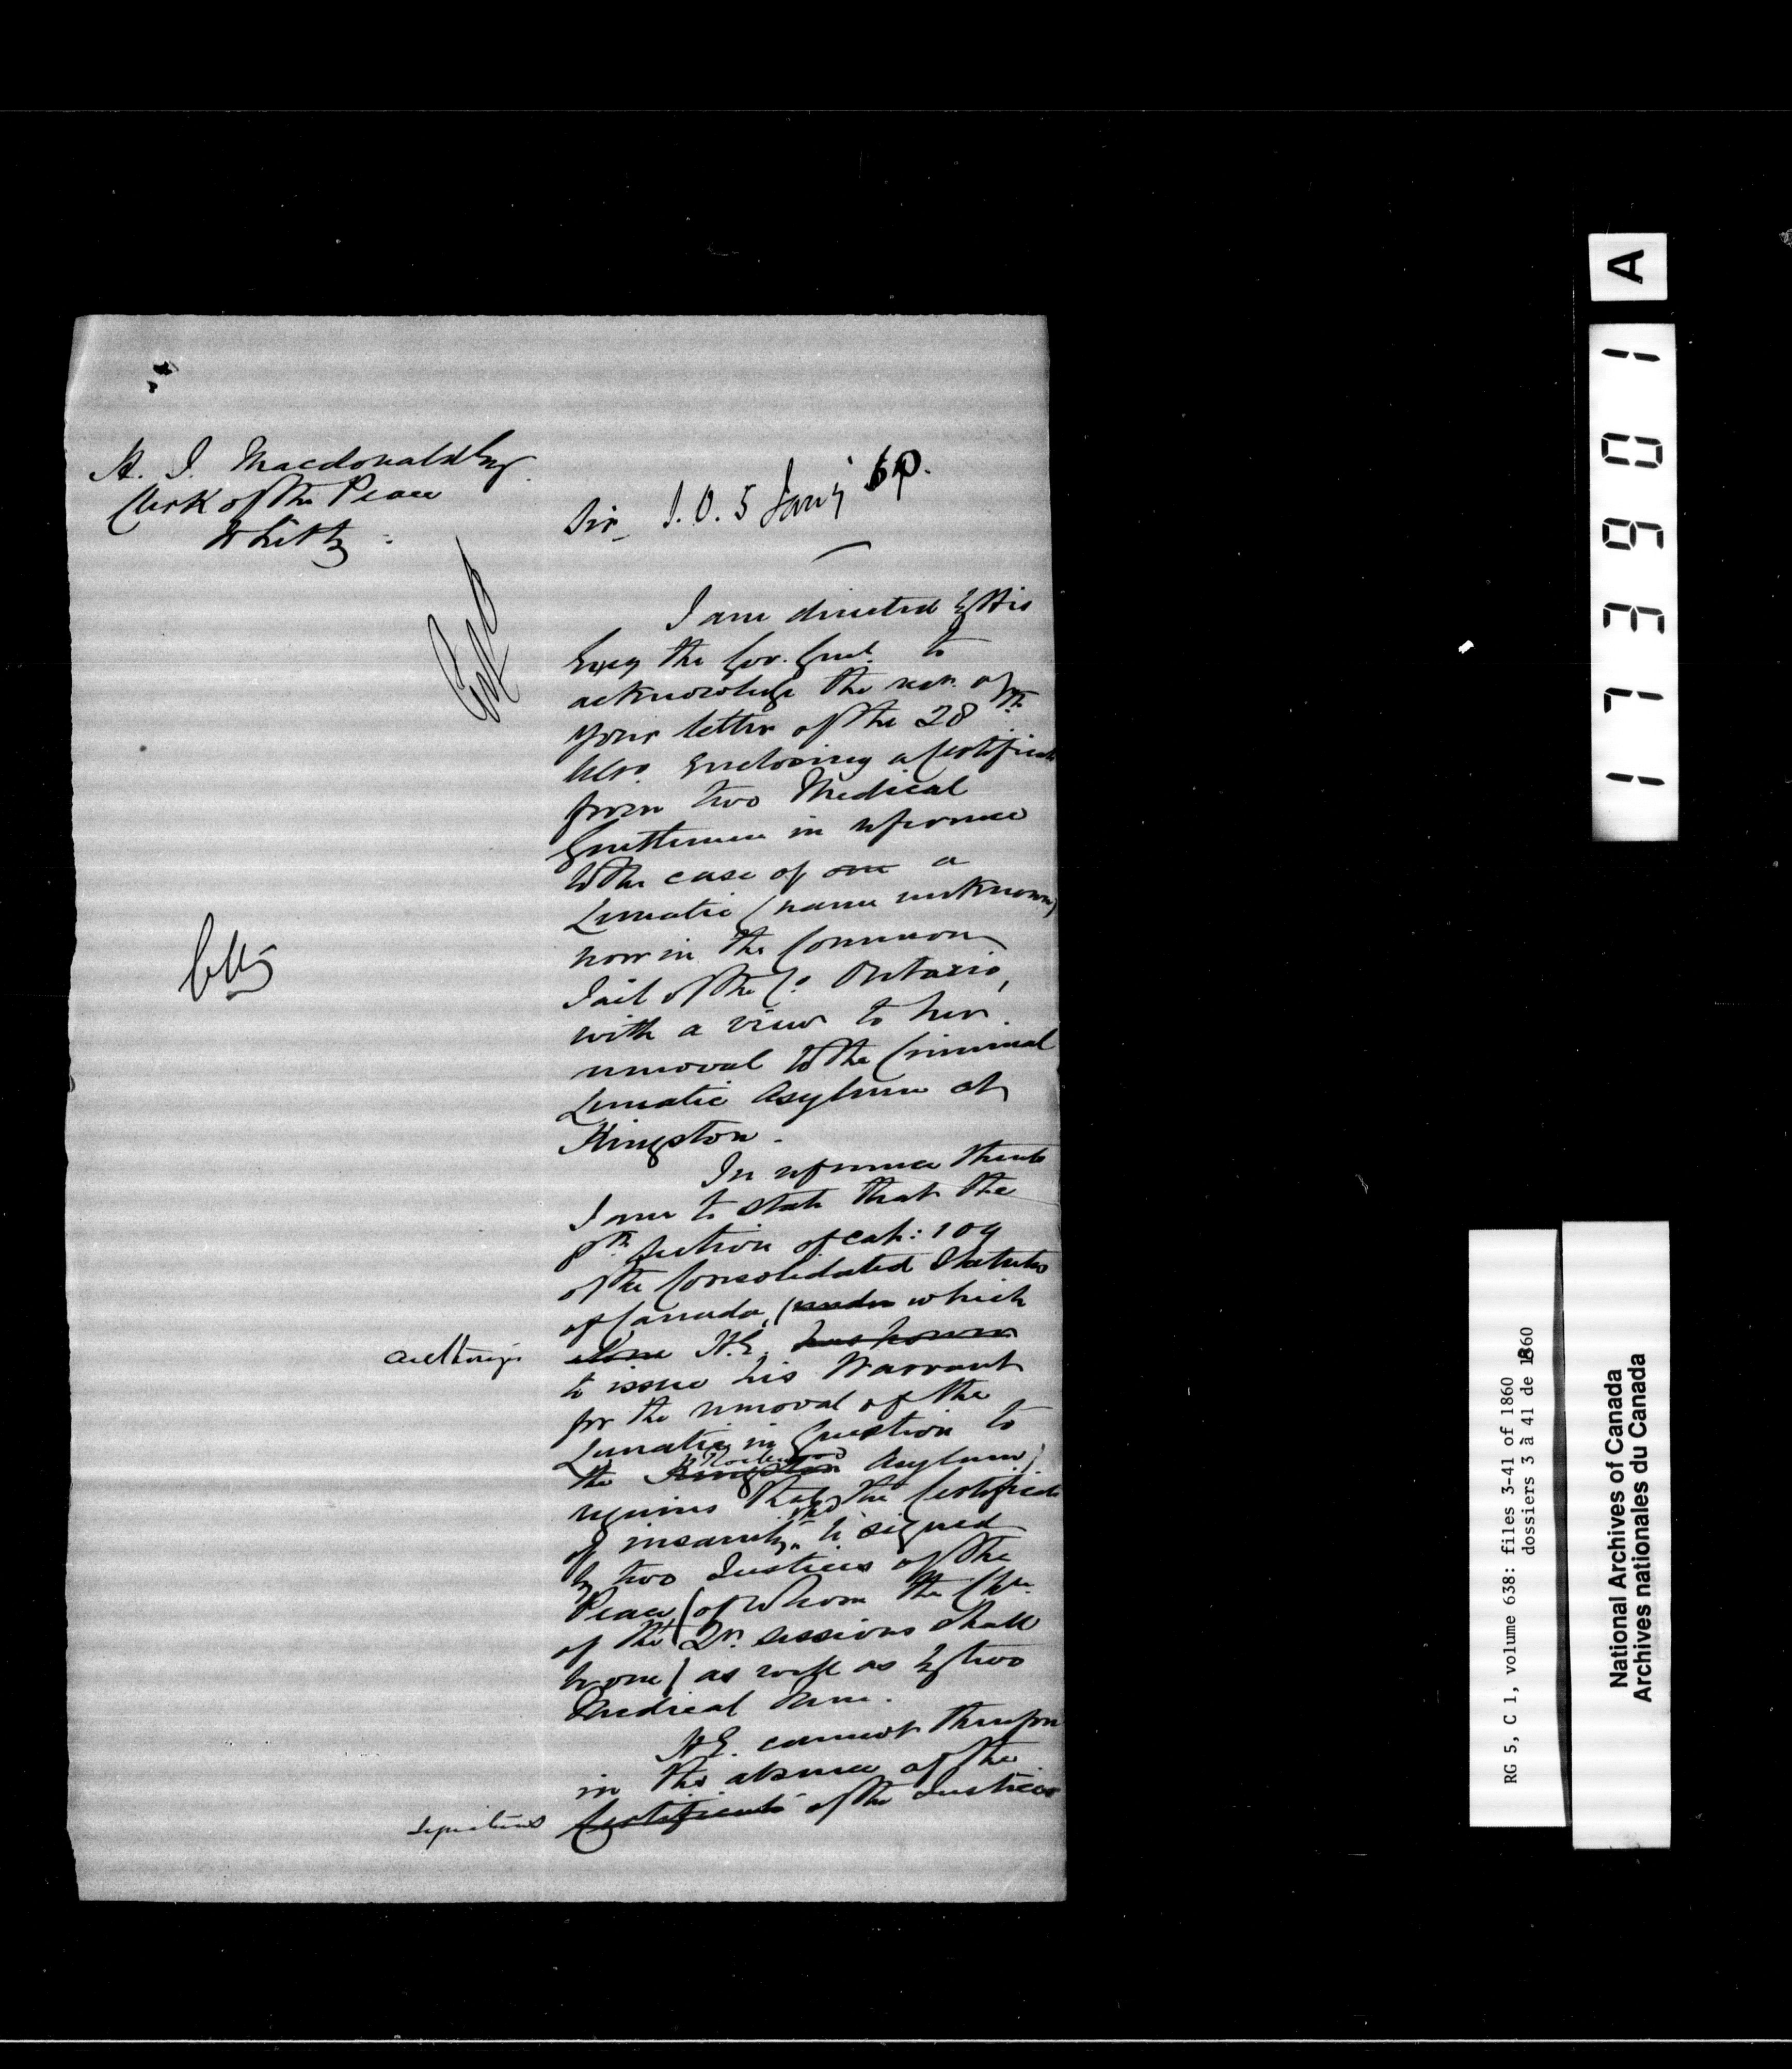 H. J. Macdonald Esq
Clerk of the Peace
Whitby
Sir, S.O. 5 Jany 60.
I am directed by His
Excy the Gov. Genl. to
acknowledge the rec. of
your letter of the 28th
Ulto. enclosing a Certificate
from two Medical
Gentlemen in reference
to the case of one a
Lunatic (name unknown)
now in the Common
Jail of the Co. Ontario,
with a view to her
removal to the Criminal
Lunatic Asylum at
Kingston.
In reference thereto
I am to state that the
8th section of cap: 109
of the Consolidated Statutes
of Canada, (under which
authorizes
alone H.E. has power
to issue his Warrant
for the removal of the
Lunatic in question to
Rockwood
the Kingston Asylum)
requires that the Certificate
of insanity be signed
by two Justices of the
Peace (of whom the Chn.
of the Qr. Sessions shall
be one) as well as by two
Medical Men.
H.E. cannot therefore
in the absence of the
signatures
Certificate of the Justices
A
173601
RG 5, C 1, volume 638: files 3-41 of 1860
dossiers 3 à 41 de 1860
National Archives of Canada
Archives nationales du Canada